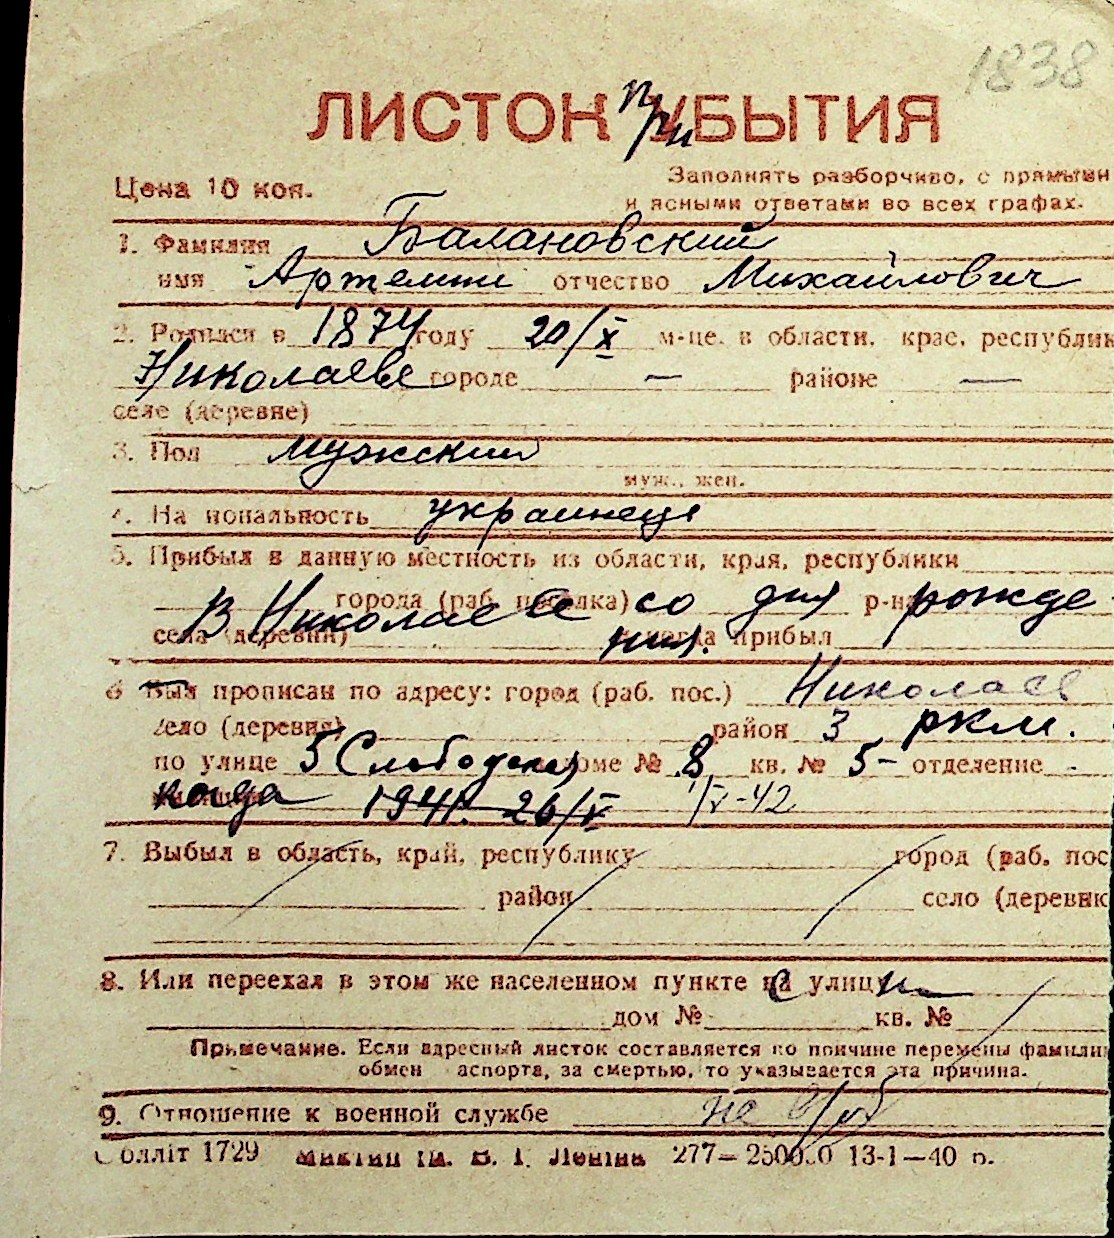 1838
ЛИСТОК при УБЫТИЯ
Цена 10 коп.
Заполнять разборчиво, с прямыми
и ясными ответами во всех графах.
1. Фамилия Балановский
имя Артемий отчество Михайлович
2. Родился в 1874 году 20/X м-це. в области, крае, республик
Николаеве городе — районе —
селе (деревне)
3. Пол мужской
муж., жен.
4. Национальность украинец
5. Прибыл в данную местность из области, края, республики
города (раб. поселка) р-на
В Николаеве со дня рожде
села (деревни) ния. и когда прибыл
6 Был прописан по адресу: город (раб. пос.) Николаев
село (деревня) район 3 ркм.
по улице 5 Слободская доме № 8 кв. № 5 - отделение -
когда 1941. 26/V 1/V-42
7. Выбыл в область, край, республику город (раб. пос
район село (деревню
8. Или переехал в этом же населенном пункте на улицу
дом № кв. №
Примечание. Если адресный листок составляется по причине перемены фамилии
обмен паспорта, за смертью, то указывается эта причина.
9. Отношение к военной службе не в/об
Облліт 1729 ім. В. І. Леніна 277—25000.0 13-1—40 р.